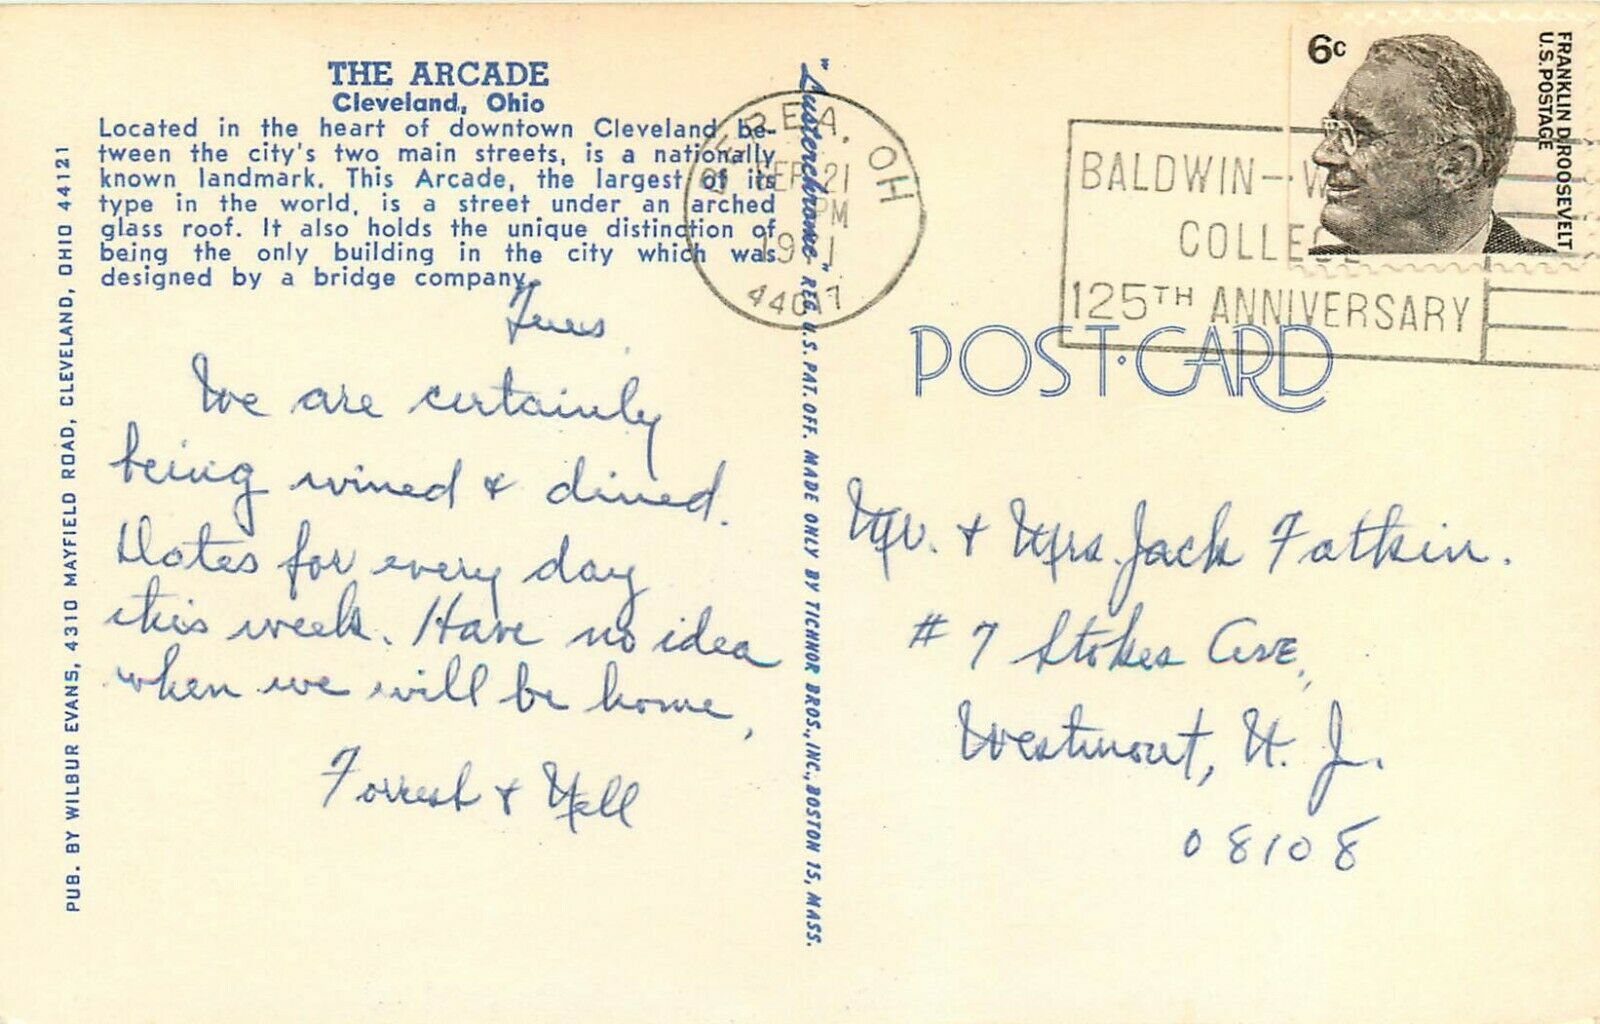 THE ARCADE
Cleveland, Ohio
Located in the heart of downtown Cleveland be-
tween the city's two main streets, is a nationally
known landmark. This Arcade, the largest of its
type in the world, is a street under an arched
glass roof. It also holds the unique distinction of
being the only building in the city which was
designed by a bridge company.
Tues.
We are certainly
being wined & dined.
Dates for every day
this week. Have no idea
when we will be home,
Forrest & Nell
PUB. BY WILBUR EVANS, 4310 MAYFIELD ROAD, CLEVELAND, OHIO 44121
"Lusterchrome" REG. U.S. PAT. OFF. MADE ONLY BY TICHNOR BROS., INC., BOSTON 15, MASS.
BEREA, OH
SEP 21
PM
1971
44017
BALDWIN-W
COLLEGE
125TH ANNIVERSARY
6c
FRANKLIN D. ROOSEVELT
U.S. POSTAGE
POST·CARD
Mr. & Mrs. Jack Fatkin.
# 7 Stokes Ave.,
Westmont, N. J.
08108